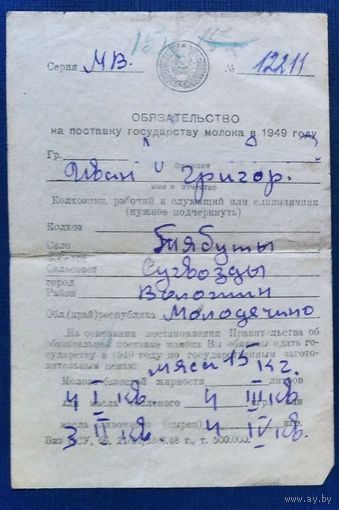 15
Серия МВ. № 12211
ОБЯЗАТЕЛЬСТВО
на поставку государству молока в 1949 году
Гр.
фамилия
Иван Григор.
имя и отчество
Колхозник, рабочий и служащий или единоличник
(нужное подчеркнуть)
Колхоз
Село Тябуты
Сельсовет Сугвозды
город
Район Воложин
Обл.(край)республика Молодечно
На основании постановления Правительства об
обязательной поставке молока Вы обязаны сдать го-
сударству в 1949 году по государственным загото-
вительным ценам:
мяса 15 кг.
Молока базисной жирности литров
4 I кв. 4 III кв.
или масла топленого
3 II кв. 4 IV кв.
масла сливочного (сырец) кгр.
48 г., т. 500.000.
ay.by